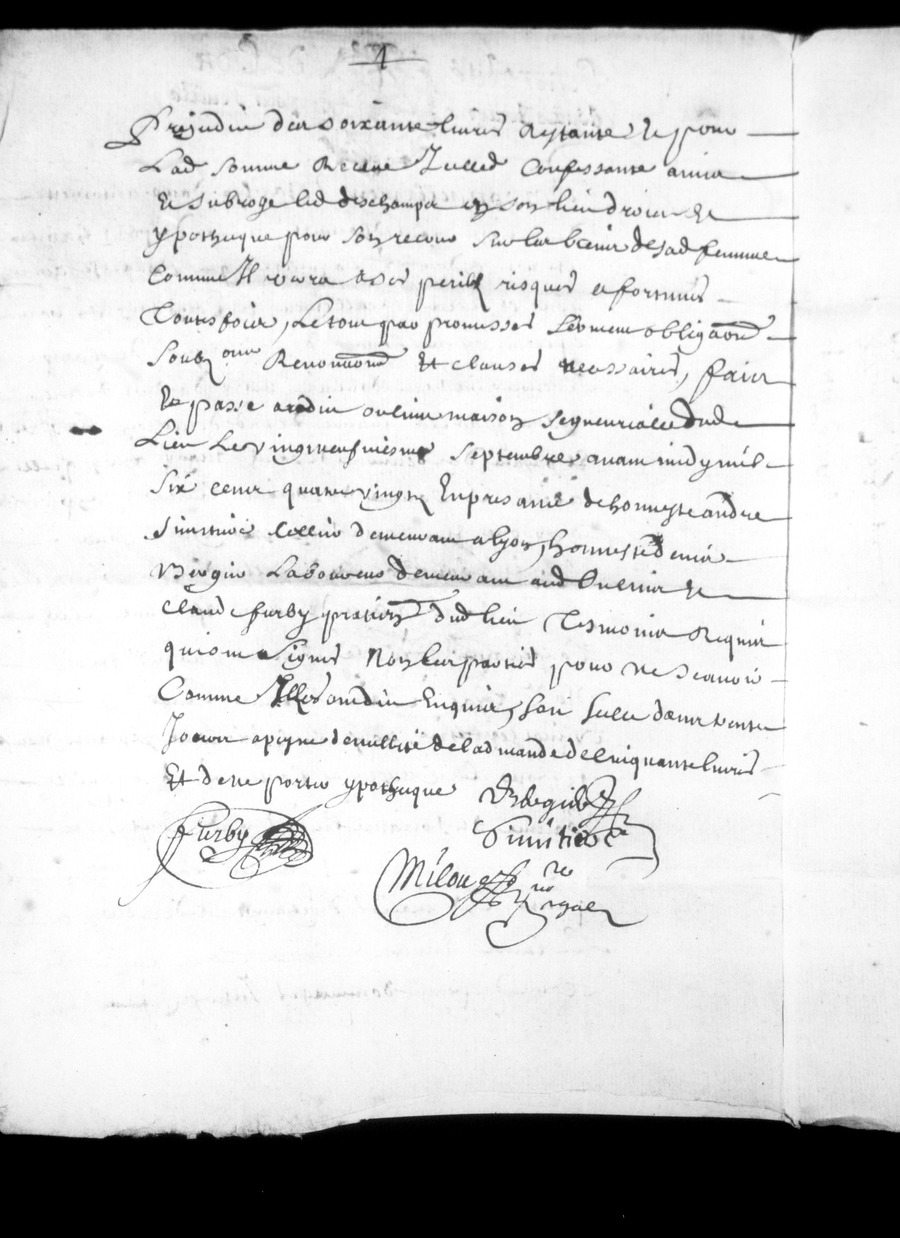 4
Prejudice des soixante livres Restante et pour
Lad somme Receue Confessante
et subroge led deschamps en son lieu droict et
ypotheque pour son recours sur les biens de sad femme
Comme Il verra a ses perils risques et fortunes
Toutesfois, Le tout par promesses serment obligaōns
soubz Renonciaōns Et clauses necessaires, faict
et passe aud oullins maison seigneurialle dud
Lieu Le vingtneufviesme septembre avant midy mil
six cent quatre vingtz En presance de honneste andre
demeurant a lyon, honneste denis
Laboureur demeurant aud Oullins et
Claude furby praticien dud lieu Tesmoins Requis
qui ont signes Non les parties pour ne scavoir
Comme Illes ont dict Enquis,
a peyne de nullite de lad de cinquante livres
Et de ne porter ypotheque
Furby
Milou
no^re
royal